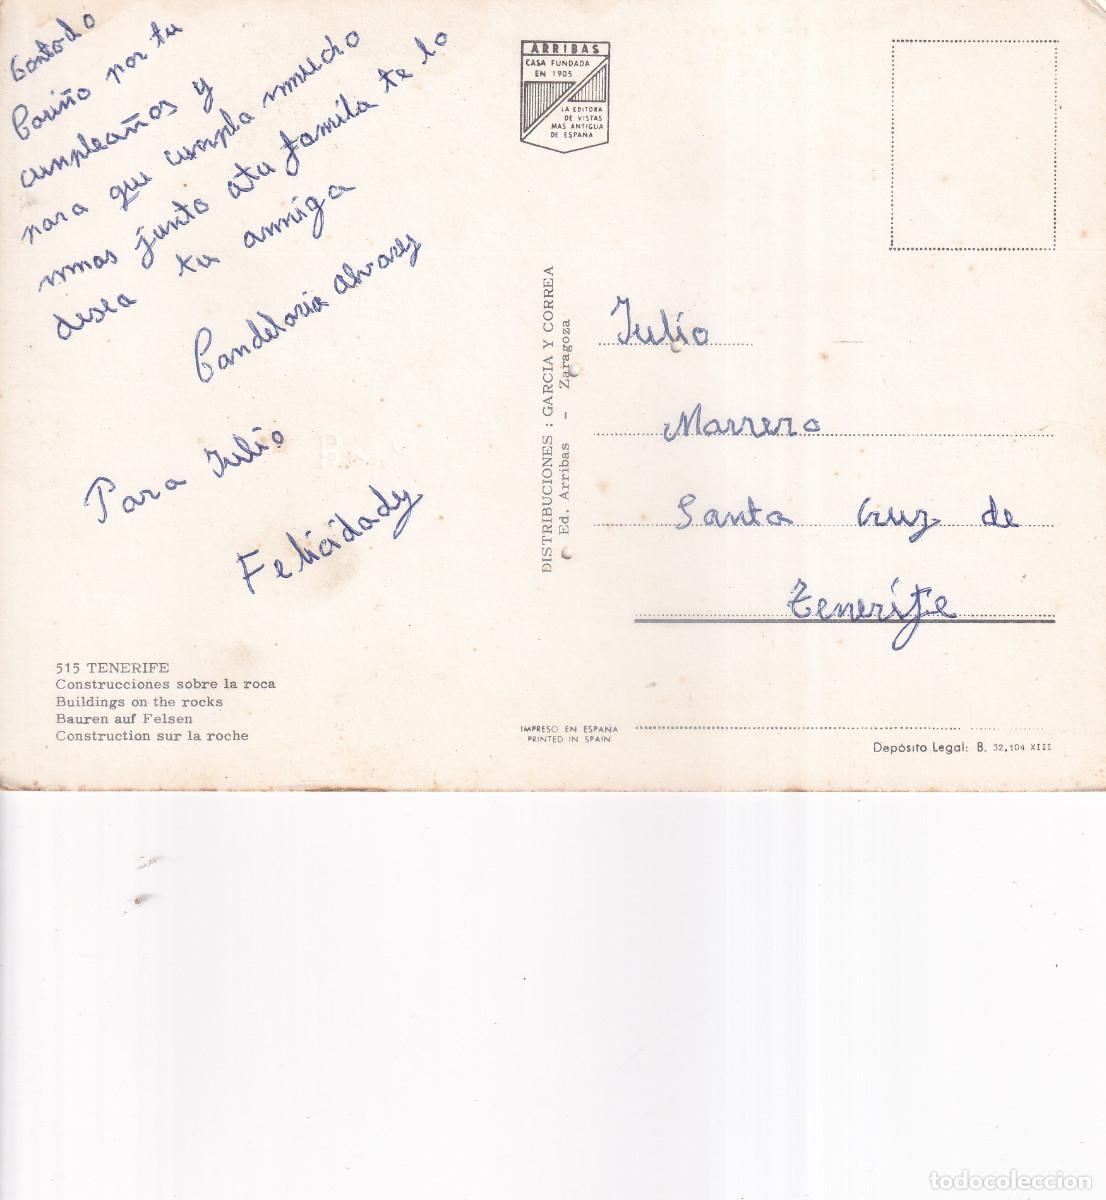 Contodo
Cariño por tu
cumpleaños y
para que cumpla mucho
mas junto atu familia te lo
desea tu amiga
Candelaria alvarez
Para Julio
Felicidadz
515 TENERIFE
Construcciones sobre la roca
Buildings on the rocks
Bauren auf Felsen
Construction sur la roche
ARRIBAS
CASA FUNDADA
EN 1905
LA EDITORA
DE VISTAS
MAS ANTIGUA
DE ESPAÑA
DISTRIBUCIONES : GARCIA Y CORREA
Ed. Arribas - Zaragoza
IMPRESO EN ESPAÑA
PRINTED IN SPAIN
Julio
Marrero
Santa Cruz de
Tenerife
Depósito Legal: B. 32,104 XIII
todocoleccion